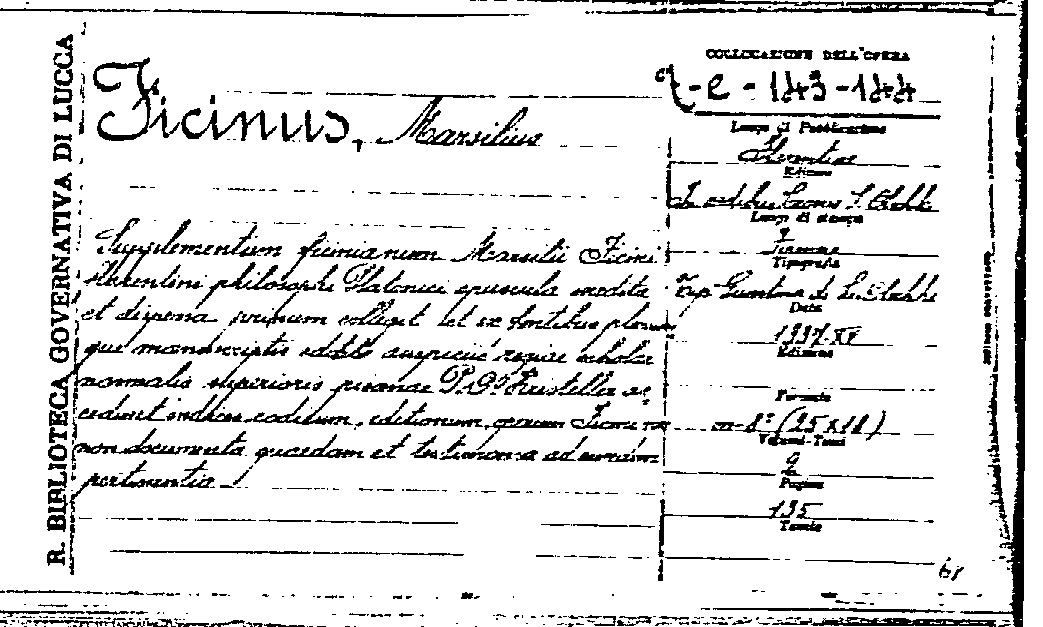 R. BIBLIOTECA GOVERNATIVA DI LUCCA
Ficinus, Marsilius
Supplementum ficinianum Marsilii Ficini
florentini philosophi Platonici opuscula inedita
et dispersa primum collegit et ex fontibus plerum
que manuscriptis edidit auspiciis regiae scholae
normalis superioris pisanae P. O. Kristeller ac
cedunt indices codicum, editionum, operum Ficini nec
non documenta quaedam et testimonia ad eundem
pertinentia
COLLOCAZIONE DELL'OPERA
e - 143 - 144
Luogo di Pubblicazione
Florentiae
Editore
In aedibus Leonis S. Olschki
Luogo di stampa
Firenze
Tipografia
Tip. Giuntina di L. Olschki
Data
1937-XV
Edizione
Formato
in 8° (25x18)
Volumi-Tomi
2
Pagine
195
Tavole